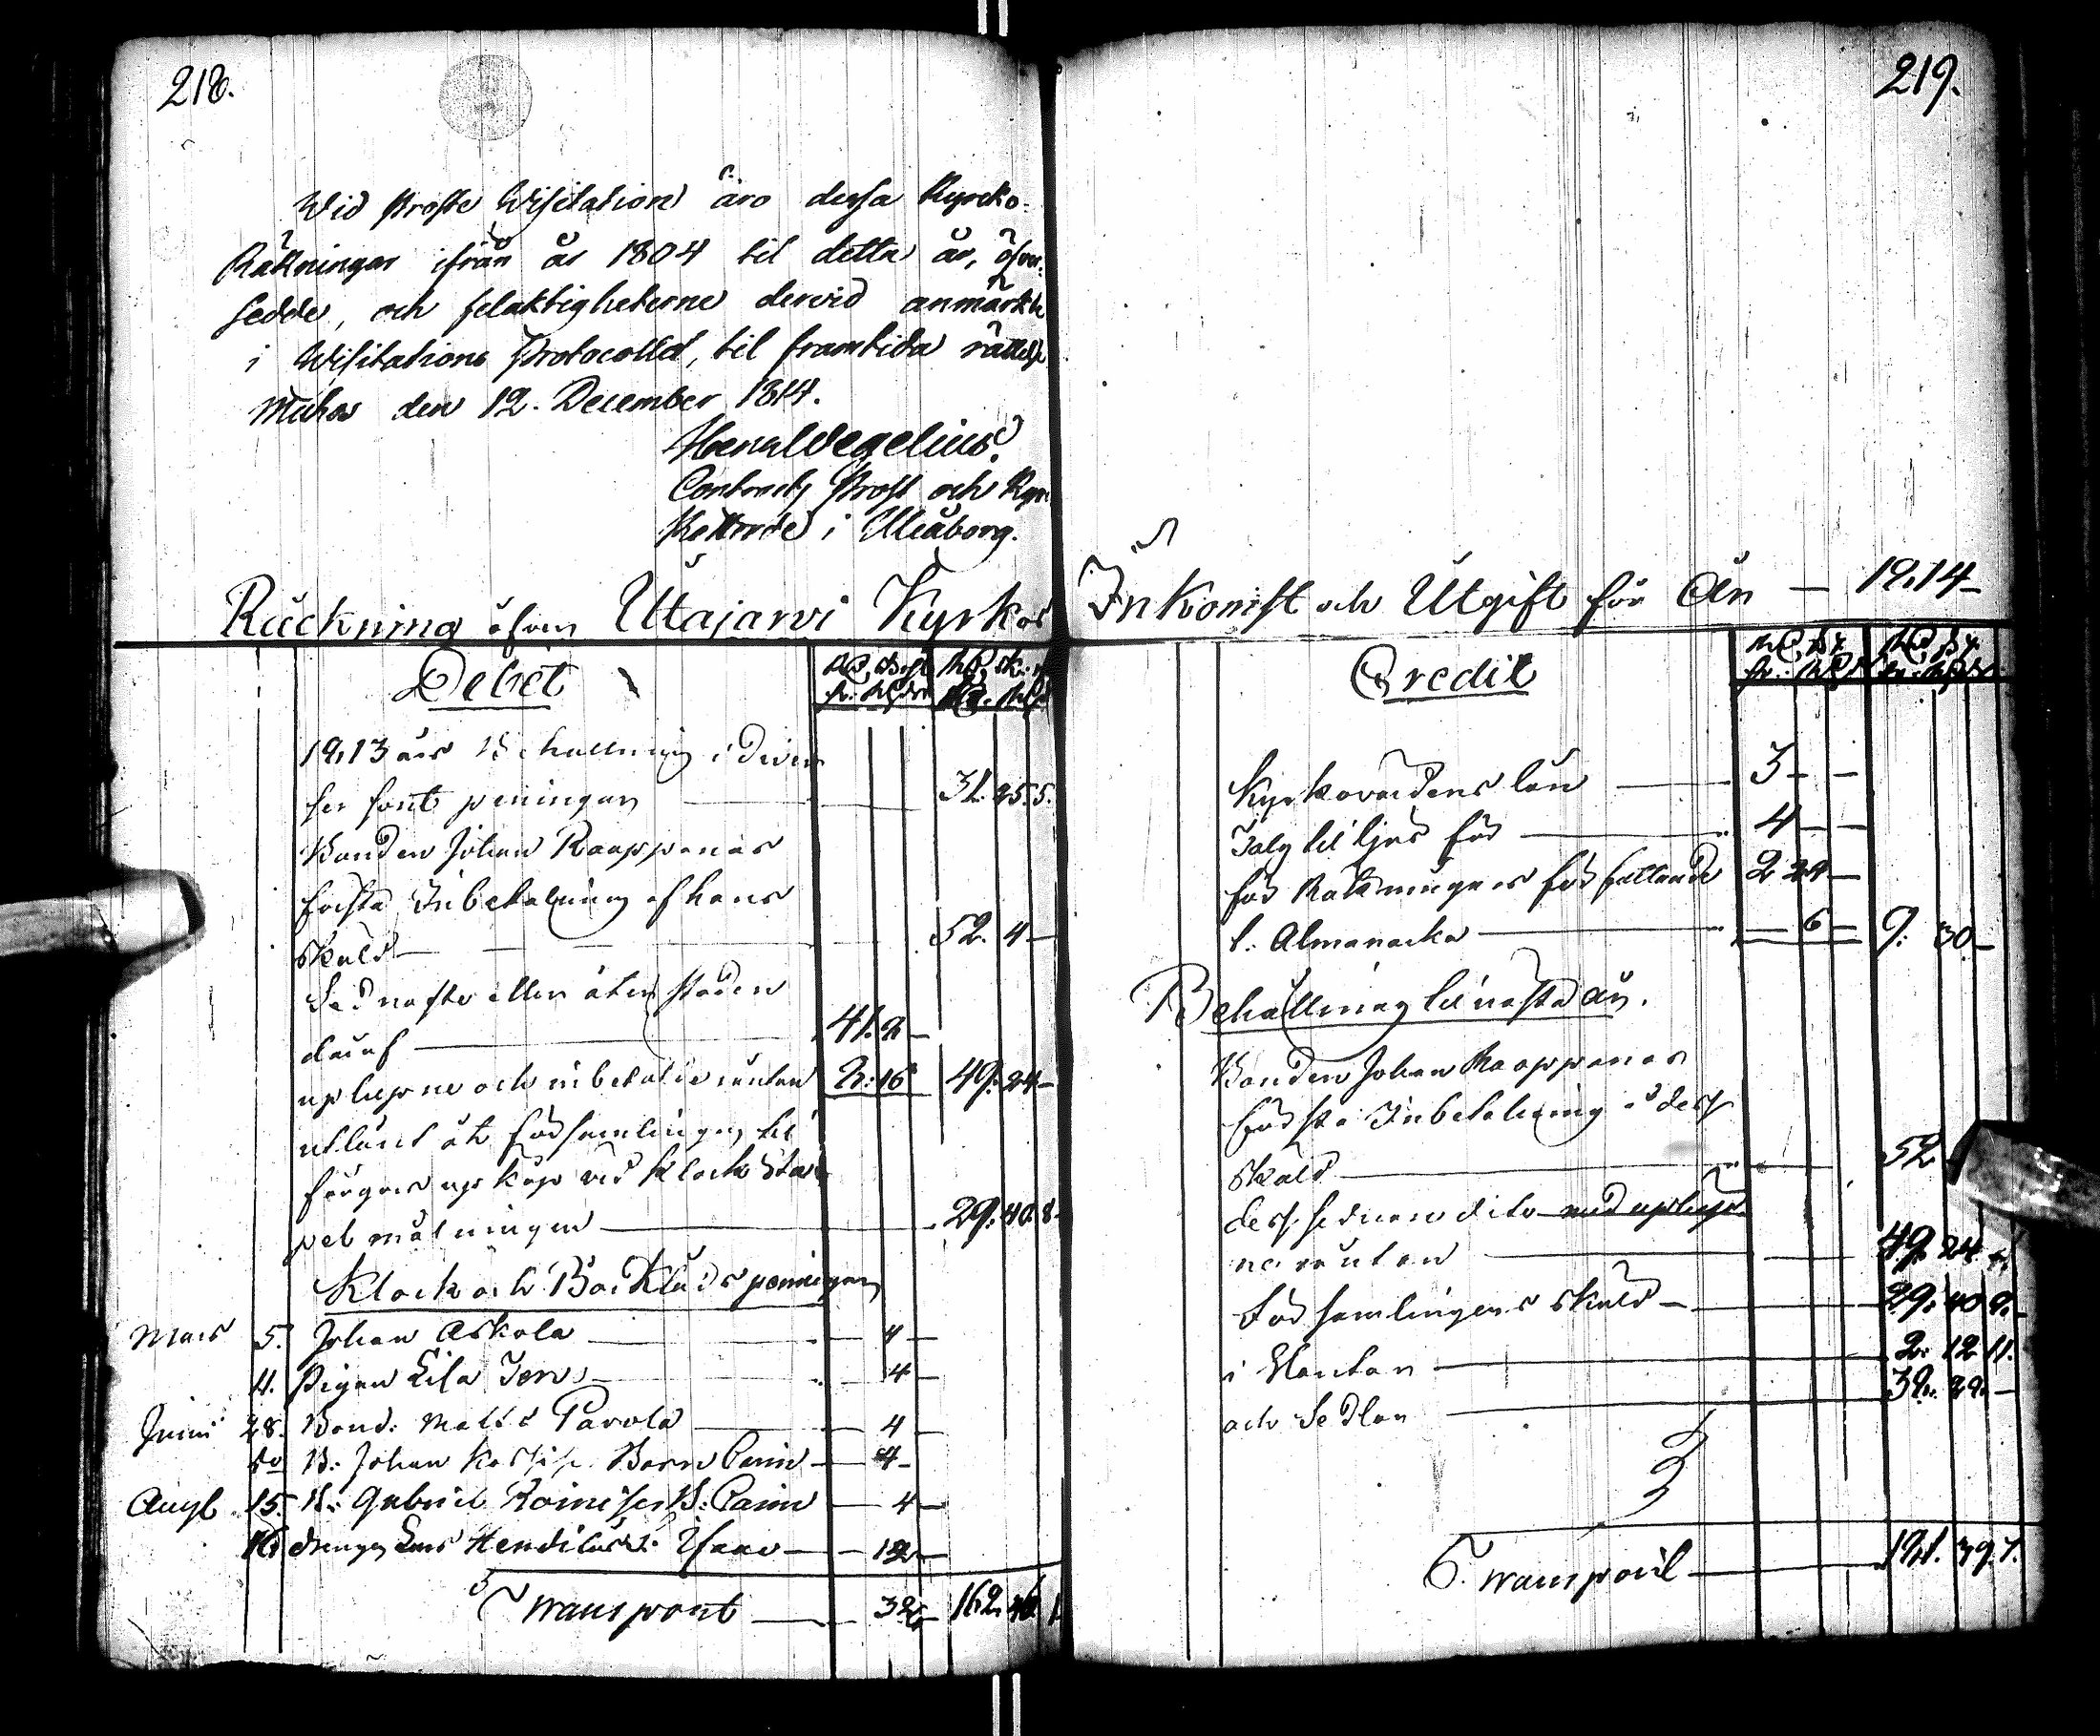 218.
Wid Prosts Wisitation äro dessa Kyrcko-
Räkningar ifrån år 1804 til detta år, öfver-
sedde, och felaktigheterne dervid anmärkte
i Wisitations Protocollet, til framtida rättelse
Muhos den 12. December 1814.
Contracts Prost och Kyr
i Uleåborg.
Räckning öfver Uttajärvi Kyrkos
Debet
1813 års Behållning i diver
ser sorts peningar 31. 25. 5.
Bonden Johan Kaappanas
första Inbetalning af hans
skuld 52. 4
Sednaste eller återstoden
däraf 41. 8
uplupne och inbetalde räntan 2: 16 49: 24
utlånt åt församlingen til
färgors upköp vid Klock Sta
pel målningen 29: 40. 8
Klock och Bårkläds penningar
Mars 5. Johan Askola 4
11. Pigan Lisa 4
Junii 28. Bond: Matts Pavola 4
do B: Johan Barn 4
Augt 15. B: Gabriel 4
drengen Lars
Transport 162.
219.
Inkomst och Utgift för År 1814
Credit
Kyrkovärdens lön 3
Talg til ljus för 4
för Räkningens författande 2
1: Almanacka 6 9: 30
Behållning til nästa år.
Bonden Johan Kaappanas
första Inbetalning i dess
skuld 52
dess sednare dito med uplup
ne räntan 49. 24
Församlingens skuld 29: 40 8
i Slantar 2: 12 11.
och Sedlar
Transport 39. 7.